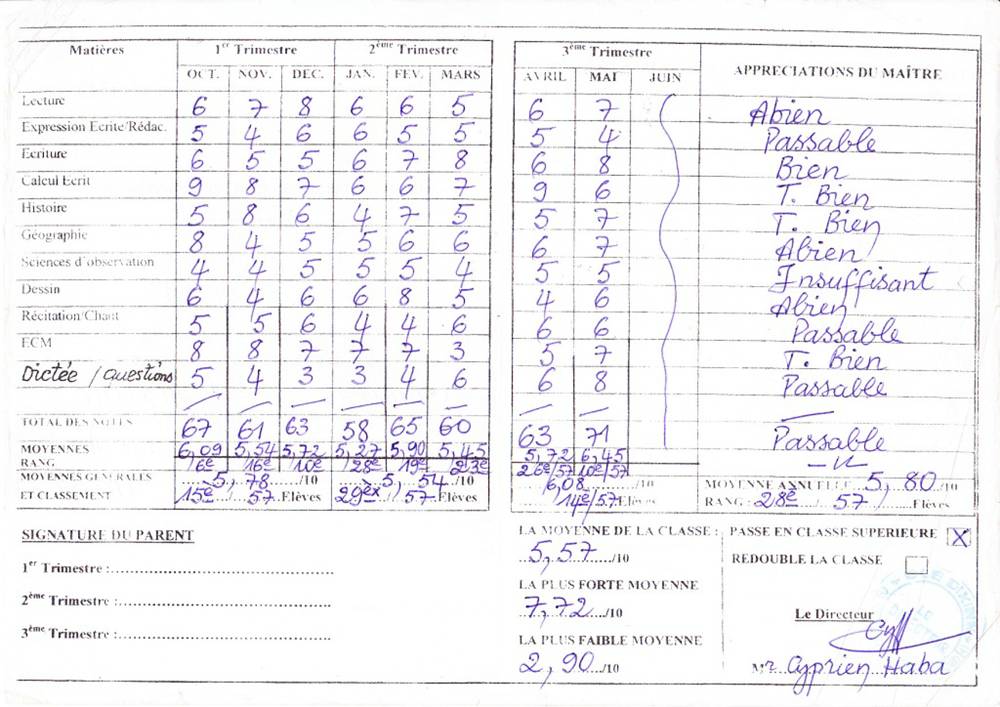 Matières 1er Trimestre 2ème Trimestre 3ème Trimestre APPRECIATIONS DU MAÎTRE
OCT. NOV. DEC. JAN. FEV. MARS AVRIL MAI JUIN
Lecture 6 7 8 6 6 5 6 7 Abien
Expression Ecrite/Rédac. 5 4 6 6 5 5 5 4 Passable
Ecriture 6 5 5 6 7 8 6 8 Bien
Calcul Ecrit 9 8 7 6 6 7 9 6 T. Bien
Histoire 5 8 6 4 7 5 5 7 T. Bien
Géographie 8 4 5 5 6 6 6 7 Abien
Sciences d'observation 4 4 5 5 5 4 5 5 Insuffisant
Dessin 6 4 6 6 8 5 4 6 Abien
Récitation/Chant 5 5 6 4 4 6 6 6 Passable
ECM 8 8 7 7 7 3 5 7 T. Bien
Dictée / questions 5 4 3 3 4 6 6 8 Passable
TOTAL DES NOTES 67 61 63 58 65 60 63 71 Passable
MOYENNES 6,09 5,54 5,72 5,27 5,90 5,45 5,72 6,45
RANG 6e 16e 10e 28e 19e 23e 26e/57 10e/57
MOYENNES GENERALES 5,78 /10 5,54 /10 6,08 /10 MOYENNE ANNUELLE 5,80 /10
ET CLASSEMENT 15e 57 Elèves 29ex 57 Elèves 14e/57 Elèves RANG : 28e 57 Elèves
SIGNATURE DU PARENT
1er Trimestre :
2ème Trimestre :
3ème Trimestre :
LA MOYENNE DE LA CLASSE :
5,57 /10
LA PLUS FORTE MOYENNE
7,72 /10
LA PLUS FAIBLE MOYENNE
2,90 /10
PASSE EN CLASSE SUPERIEURE X
REDOUBLE LA CLASSE
Le Directeur
Mr. Cyprien Haba